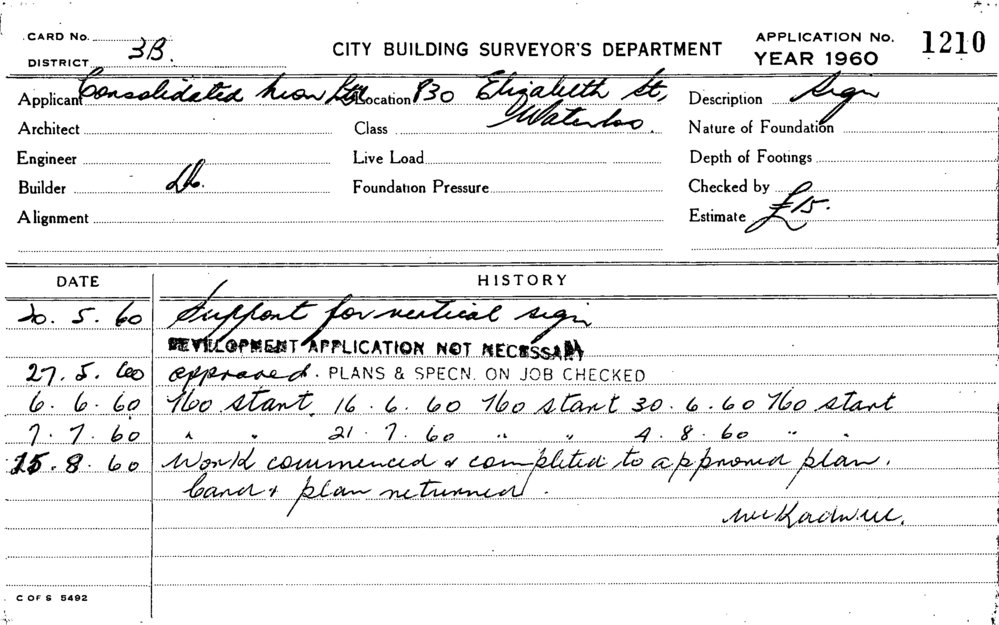 CARD No.
DISTRICT 3B.
CITY BUILDING SURVEYOR'S DEPARTMENT
APPLICATION No. 1210
YEAR 1960
Applicant Consolidated Neon Ltd Location 830 Elizabeth St, Description Sign
Architect Class Waterloo. Nature of Foundation
Engineer Live Load Depth of Footings
Builder Foundation Pressure Checked by
Alignment Estimate £15.
DATE HISTORY
20. 5. 60 Support for vertical sign
DEVELOPMENT APPLICATION NOT NECESSARY
27. 5. 60 approved. PLANS & SPECN. ON JOB CHECKED
6. 6. 60 No start. 16. 6. 60 No start 30. 6. 60 No start
7. 7. 60 " " 21. 7. 60 " " 4. 8. 60 " "
15. 8. 60 Work commenced & completed to approved plan.
Card & plan returned.
C OF S 5492